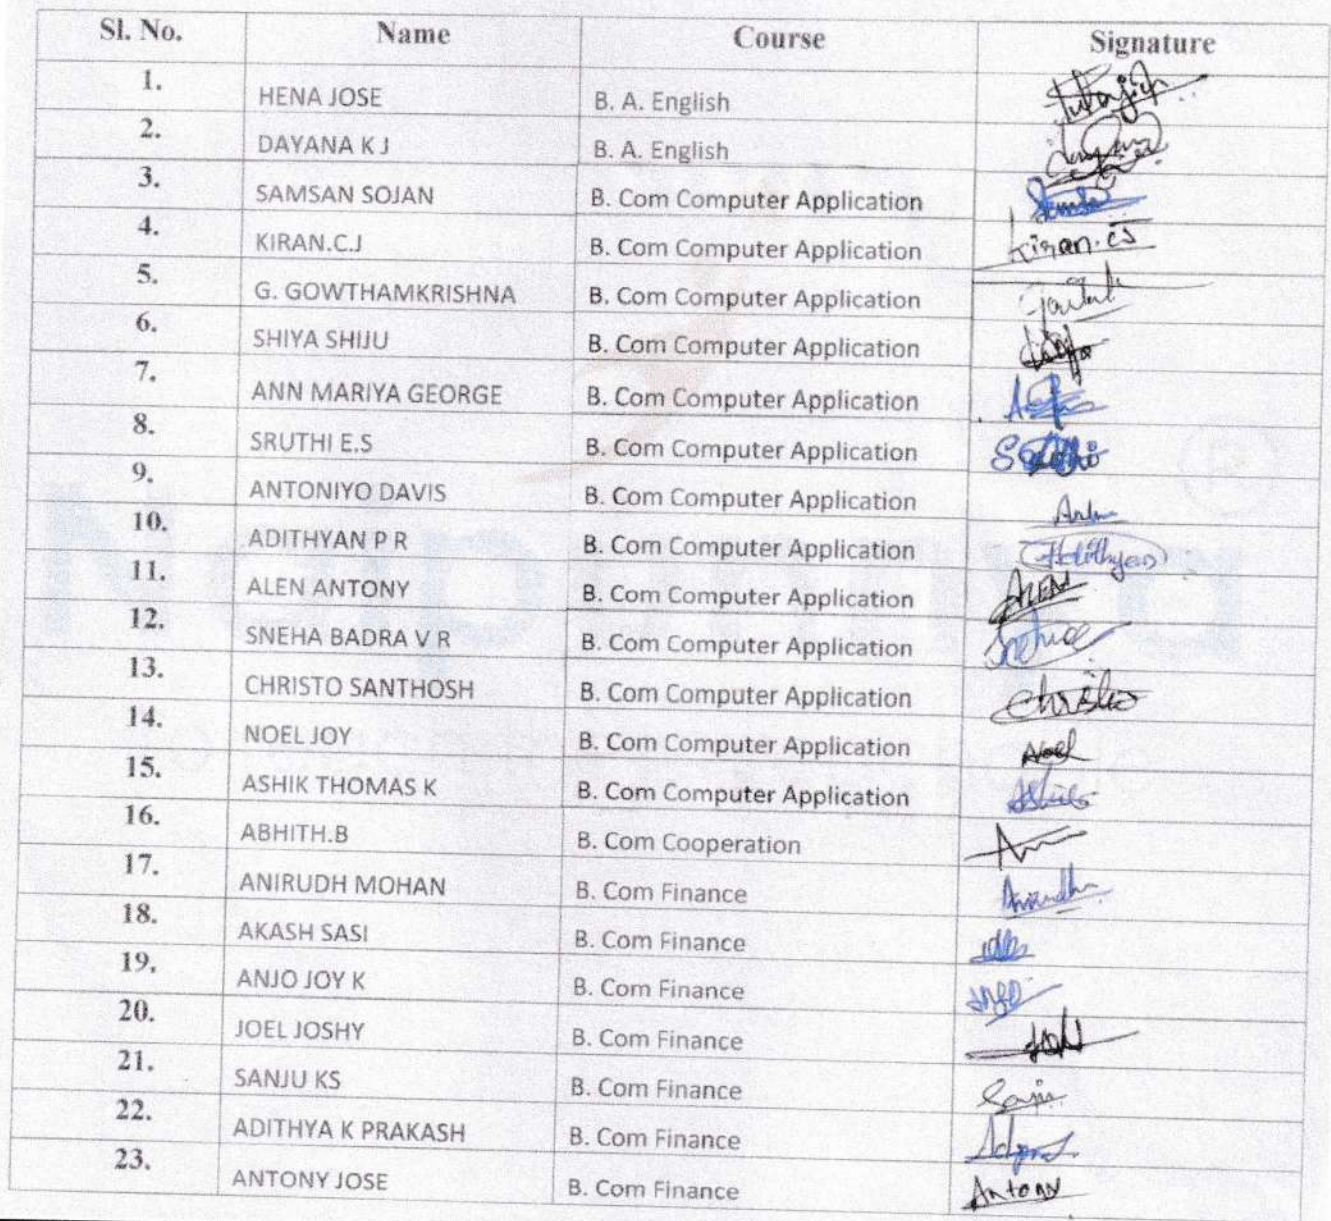 Sl. No. Name Course Signature
1. HENA JOSE B. A. English
2. DAYANA K J B. A. English
3. SAMSAN SOJAN B. Com Computer Application
4. KIRAN.C.J B. Com Computer Application Kiran.CJ
5. G. GOWTHAMKRISHNA B. Com Computer Application
6. SHIYA SHIJU B. Com Computer Application
7. ANN MARIYA GEORGE B. Com Computer Application
8. SRUTHI E.S B. Com Computer Application
9. ANTONIYO DAVIS B. Com Computer Application
10. ADITHYAN P R B. Com Computer Application Adithyan
11. ALEN ANTONY B. Com Computer Application ALEN
12. SNEHA BADRA V R B. Com Computer Application Sneha
13. CHRISTO SANTHOSH B. Com Computer Application Christo
14. NOEL JOY B. Com Computer Application Noel
15. ASHIK THOMAS K B. Com Computer Application
16. ABHITH.B B. Com Cooperation
17. ANIRUDH MOHAN B. Com Finance
18. AKASH SASI B. Com Finance
19. ANJO JOY K B. Com Finance
20. JOEL JOSHY B. Com Finance
21. SANJU KS B. Com Finance
22. ADITHYA K PRAKASH B. Com Finance
23. ANTONY JOSE B. Com Finance Antony